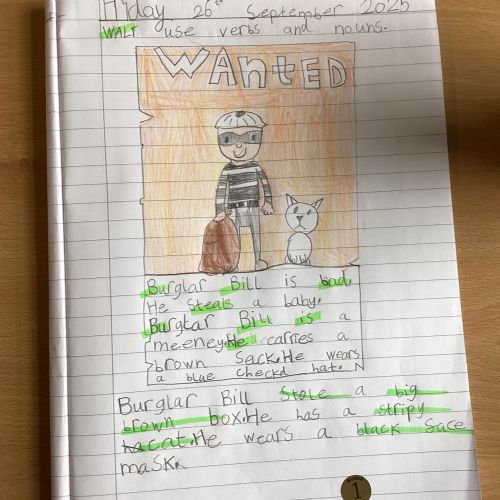 Friday 26th September 2025
WALT use verbs and nouns.
WANTED
Burglar Bill is bad.
He steals a baby.
Burglar Bill is a
meeney. He carries a
brown sack. He wears
a blue checkd hat.
Burglar Bill stole a big
brown box. He has a stripy
cat. He wears a black face
mask.
1